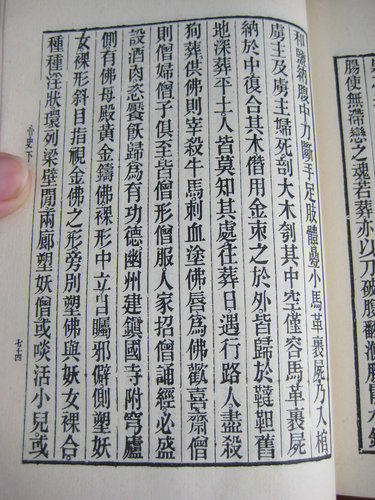 和鹽納腹中力斷手足肢體疊小馬革裹屍乃入棺
虜主及虜主婦死剖大木刳其中空僅容馬革裹屍
納於中復合其木僭用金束之於外皆歸於韃靼舊
地深葬平土人皆莫知其處往葬日遇行路人盡殺
狗葬供佛則宰殺牛馬刺血塗佛唇爲佛歡喜齋僧
則僧婦僧子俱至皆僧形僧服人家招僧誦經必盛
設酒肉恣饜飲歸爲有功德幽州建鎮國寺附穹廬
側有佛母殿黃金鑄佛裸形中立目矚邪僻側塑妖
女裸形斜目指視金佛之形旁別塑佛與妖女裸合
種種淫狀環列梁壁間兩廊塑妖僧或啖活小兒或
心史下
七十四
腸使無滯戀之魂若葬亦以刀破腹翻滌腸